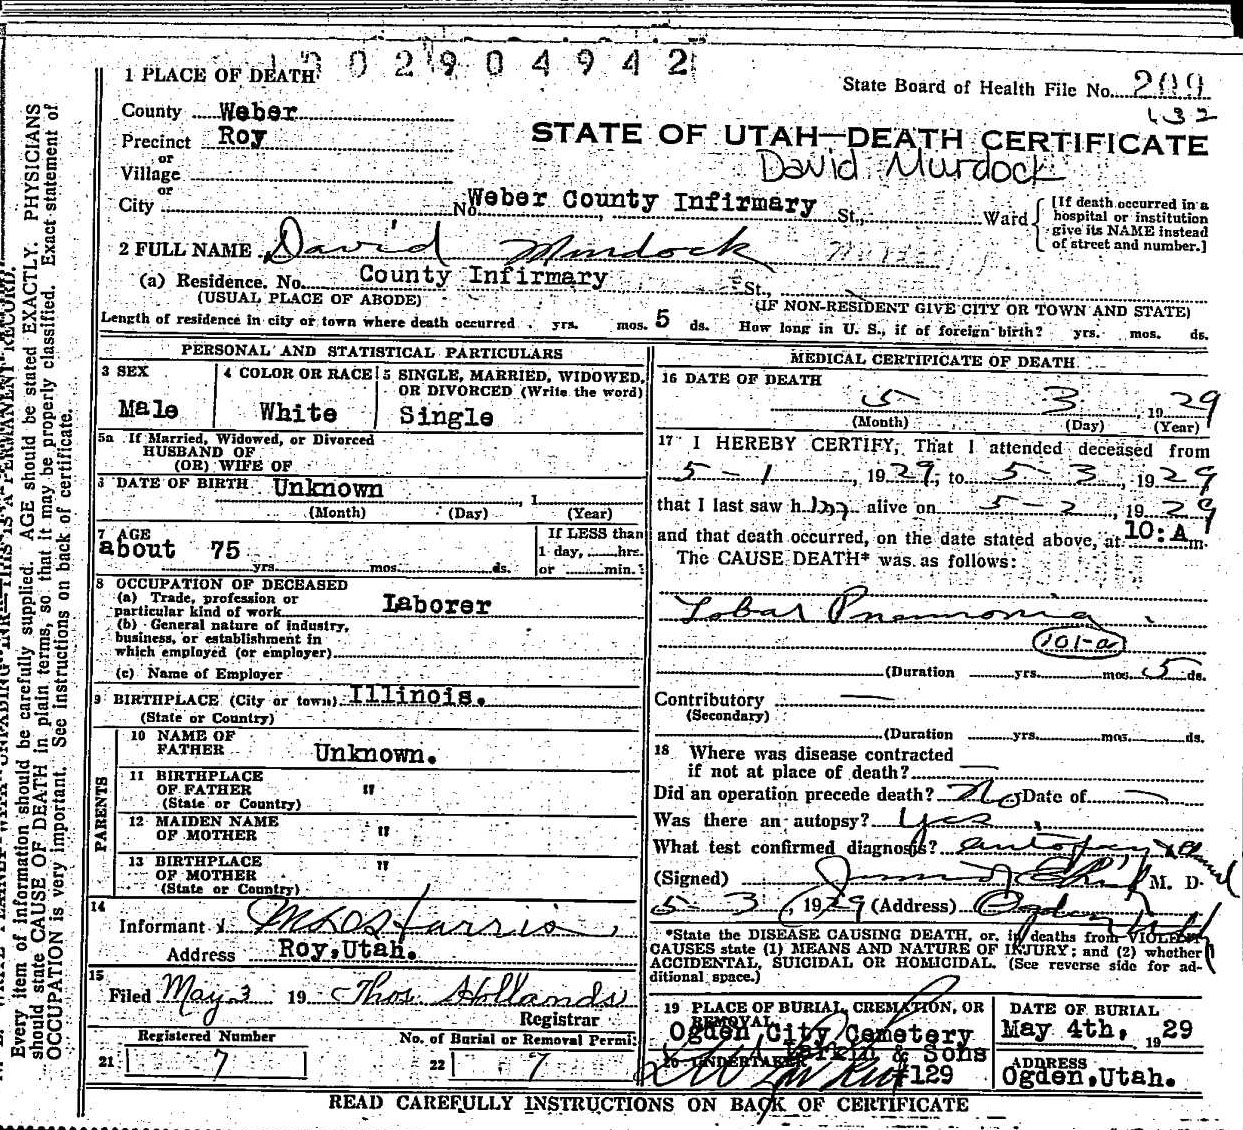 002904942
1 PLACE OF DEATH
State Board of Health File No. 209
132
County Weber
Precinct Roy
or
Village
or
City
STATE OF UTAH—DEATH CERTIFICATE
David Murdock
No. Weber County Infirmary St., Ward
[If death occurred in a
hospital or institution
give its NAME instead
of street and number.]
2 FULL NAME David Murdock
(a) Residence. No. County Infirmary St.,
(USUAL PLACE OF ABODE)
(IF NON-RESIDENT GIVE CITY OR TOWN AND STATE)
Length of residence in city or town where death occurred yrs. mos. 5 ds. How long in U. S., if of foreign birth? yrs. mos. ds.
PERSONAL AND STATISTICAL PARTICULARS
3 SEX
Male
4 COLOR OR RACE
White
5 SINGLE, MARRIED, WIDOWED,
OR DIVORCED (Write the word)
Single
5a If Married, Widowed, or Divorced
HUSBAND OF
(OR) WIFE OF
6 DATE OF BIRTH Unknown , 1
(Month) (Day) (Year)
7 AGE
about 75
yrs. mos. ds.
If LESS than
1 day, hrs.
or min.
8 OCCUPATION OF DECEASED
(a) Trade, profession or
particular kind of work Laborer
(b) General nature of industry,
business, or establishment in
which employed (or employer)
(c) Name of Employer
9 BIRTHPLACE (City or town) Illinois.
(State or Country)
PARENTS
10 NAME OF
FATHER Unknown.
11 BIRTHPLACE
OF FATHER "
(State or Country)
12 MAIDEN NAME
OF MOTHER "
13 BIRTHPLACE
OF MOTHER "
(State or Country)
14
Informant Harris
Address Roy,Utah.
15
Filed May 3 19 Thos Hollands
Registrar
Registered Number
21 7
No. of Burial or Removal Permit
22 7
MEDICAL CERTIFICATE OF DEATH
16 DATE OF DEATH
5 3 , 19 29
(Month) (Day) (Year)
17 I HEREBY CERTIFY, That I attended deceased from
5-1, 1929, to 5-3, 1929
that I last saw him alive on 5-2, 1929
and that death occurred, on the date stated above, at 10:A m.
The CAUSE DEATH* was as follows:
Lobar Pneumonia
101-a
(Duration yrs. mos. 5 ds.
Contributory —
(Secondary)
(Duration yrs. mos. ds.
18 Where was disease contracted
if not at place of death? —
Did an operation precede death? No Date of —
Was there an autopsy? Yes
What test confirmed diagnosis? autopsy
(Signed) M. D.
5-3, 1929 (Address) Ogden Utah
*State the DISEASE CAUSING DEATH, or, in deaths from VIOLENT
CAUSES state (1) MEANS AND NATURE OF INJURY; and (2) whether
ACCIDENTAL, SUICIDAL OR HOMICIDAL. (See reverse side for ad-
ditional space.)
19 PLACE OF BURIAL, CREMATION, OR
REMOVAL
Ogden City Cemetery
DATE OF BURIAL
May 4th, 1929
20 UNDERTAKER
Larkin & Sons
#129
ADDRESS
Ogden,Utah.
READ CAREFULLY INSTRUCTIONS ON BACK OF CERTIFICATE
Every item of information should be carefully supplied. AGE should be stated EXACTLY. PHYSICIANS
should state CAUSE OF DEATH in plain terms, so that it may be properly classified. Exact statement of
OCCUPATION is very important. See instructions on back of certificate.